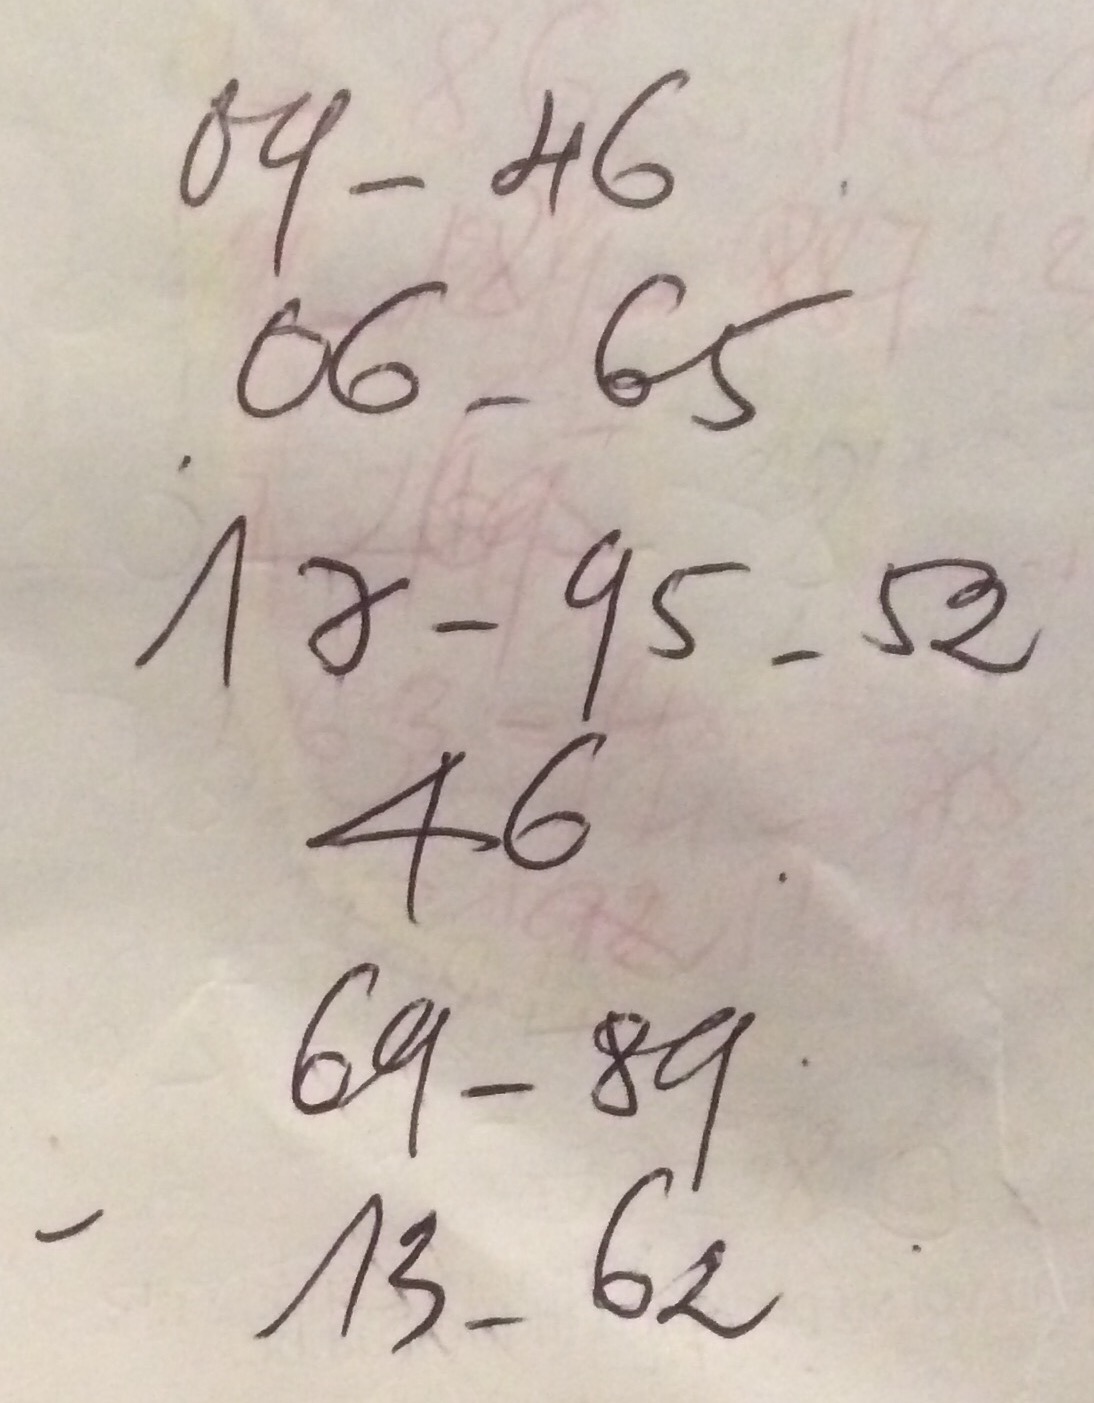 09 - 46
06 - 65
18 - 95 - 52
46
69 - 89
13 - 62